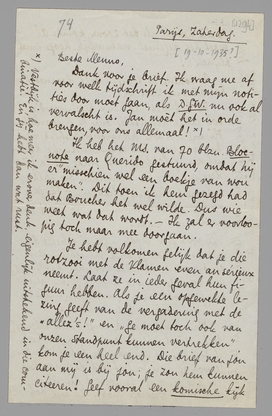 74
Parijs, Zaterdag.
[19-10-1935?]
Beste Menno,
Dank voor je brief. Ik vraag me af
voor welk tijdschrift ik met mijn noti-
ties door moet gaan, als D.G.W. nu ook al
vervalscht is. Jan moet het in orde
brengen, voor ons allemaal! *)
Ik heb het Ms. van 70 blau
note naar Querido gestuurd, omdat hij
er "misschien wel een boekje van wou
maken". Dit toen ik hem gezegd had
dat Boucher het wel wilde. Dus wie
weet wat dat wordt. — Ik zal er voorloo-
pig toch maar mee doorgaan.
Je hebt volkomen gelijk dat je die
rotzooi met de Klamen even au sérieux
neemt. Laat ze in ieder geval hun fi-
guur hebben. Als je een opgewekte le-
zing geeft van de vergadering met de
"allez's!" en "je moet toch ook van
onzen standpunt kunnen vertrekken"
kom je een heel end. Die brief van jou
aan mij is bij jou; je zou hem kunnen
citeeren! Geef vooral een komische kijk
*) Vestdijk is hoe meer ik erover denk, eigenlijk uitstekend in die com-
binatie. En jij hebt dan wat rust.